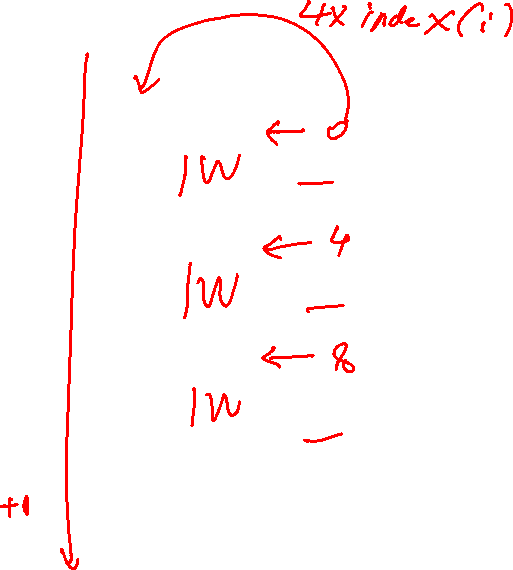 4x index(i)
← 0
lW —
← 4
lW —
← 8
lW —
+1